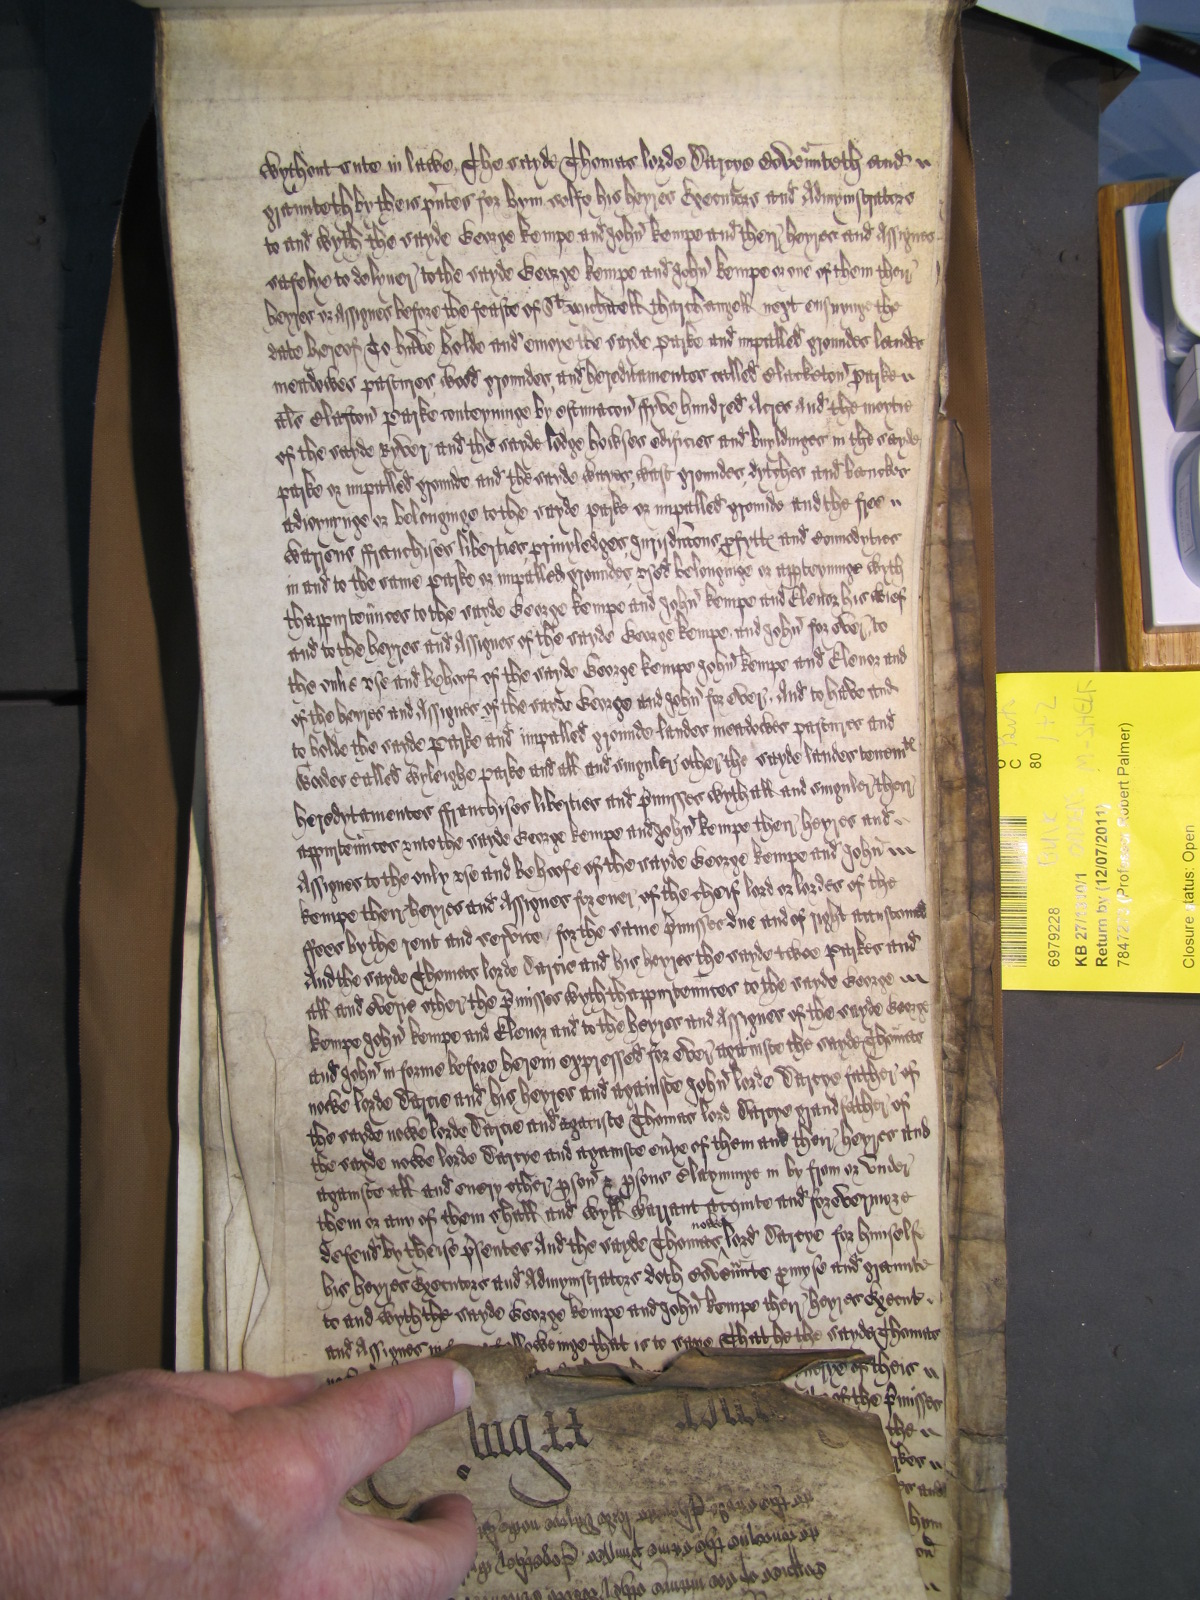 wythout sute in lawe. The sayde Thomas lorde Darcye Covenunteth and
graunteth by theis pntes for hym selfe his heyres Executors and Admynistrators
to and wyth the sayde George Kempe and John Kempe and their heyres and Assignes
safelye to delyver to the sayde George Kempe and John Kempe or one of them their
heyres or Assignes before the feaste of St Michaell tharchangell next ensuynge the
date hereof To have holde and enioye the sayde parke and impalled groundes landes
meadowes pastures, wood groundes, and hereditamentes called Clacketon parke
als Clafton Parke conteyninge by estimacon ffyve hundred Acres And the moytie
of the sayde Ryver and the sayde lodge howses edifices and buyldinges in the sayde
parke or impalled grounde and the sayde wayes, wast groundes, dytches and banckes
adioynynge or belonginge to the sayde parke or impalled grounde and the free
warrens ffranchises liberties, privyledges, Jurisdictons, pfytts and Comodyties
in and to the same parke or impalled groundes used belonginge or appteyninge wyth
thappurtenunces to the sayde George Kempe and John Kempe and Elenor his wief
and to the heyres and Assignes of the sayde George Kempe and John for ever, to
the onlie use and behoof of the sayde George Kempe John Kempe and Elenor and
of the heyres and Assignes of the sayde George and John for ever. And to have and
to holde the sayde Parke and impalled grounde landes meadowes pastures and
woodes called Wyleighe parke and all and singuler other the sayde landes tenemts
heredytamentes ffranchises liberties and pmisses wyth all and singuler their
appurtenunces unto the sayde George Kempe and John Kempe their heyres and
Assignes to the only use and behoofe of the sayde George Kempe and John
Kempe their heyres and Assignes for ever of the cheif lord or lordes of the
ffees by the rent and service for the same pmisses due and of right accustomed
And the sayde Thomas lorde Darcie and his heyres the sayde twoe parkes and
all and everie other the pmisses wyth thappurtenunces to the sayde George
Kempe John Kempe and Elenor and to the heyres and Assignes of the sayde George
and John in forme before herein expressed for ever againste the sayde Thomas
nowe lorde Darcie and his heyres and againste John lorde Darcye father of
the sayde nowe lorde Darcie and againste Thomas lord Darcye grandfather of
the sayde nowe lorde Darcye and againste evye of them and their heyres and
againste all and every other pson & psons Clayminge in by from or under
them or any of them shall and wyll warrant acquite and for evermore
defend by theise psentes And the sayde Thomas nowe lord Darcye for himself
his heyres Executors and Admynistrators doth Covenunte pmyse and graunte
to and wyth the sayde George Kempe and John Kempe their heyres Execut
and Assignes in followeinge that is to saye That he the sayde Thomas
of theis
of the pmisses
the
and
hym
6979228
KB 27/1390/1
Return by (12/07/2011)
(Professor Robert Palmer)
Closure status: Open
80